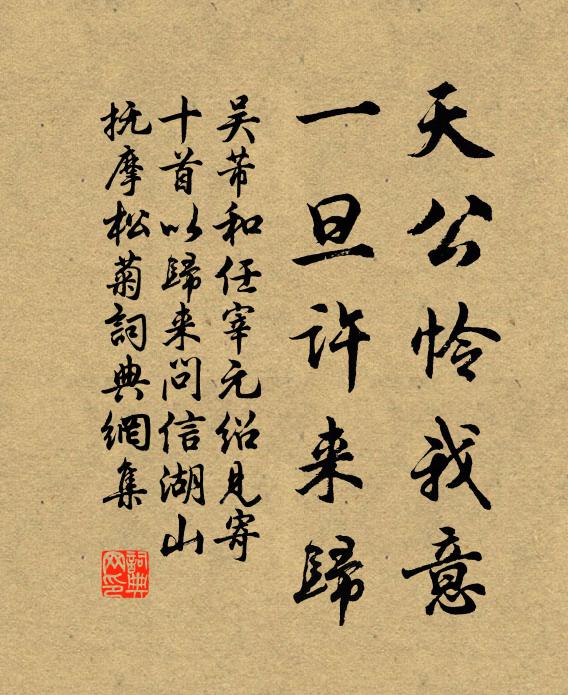 天公怜我意
一旦许来歸
吴芾和任宰元绍見寄
十首以歸来問信湖山
抚摩松菊詞典網集
詞典
网印